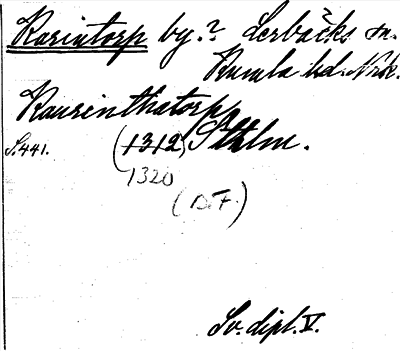 Karintorp by? Lerbäcks sn.
Kumla hd. Nrk.
Kaurinthatorpp
S. 441. (1312) Sthlm.
1320
(D.F.)
Sv. dipl. V.